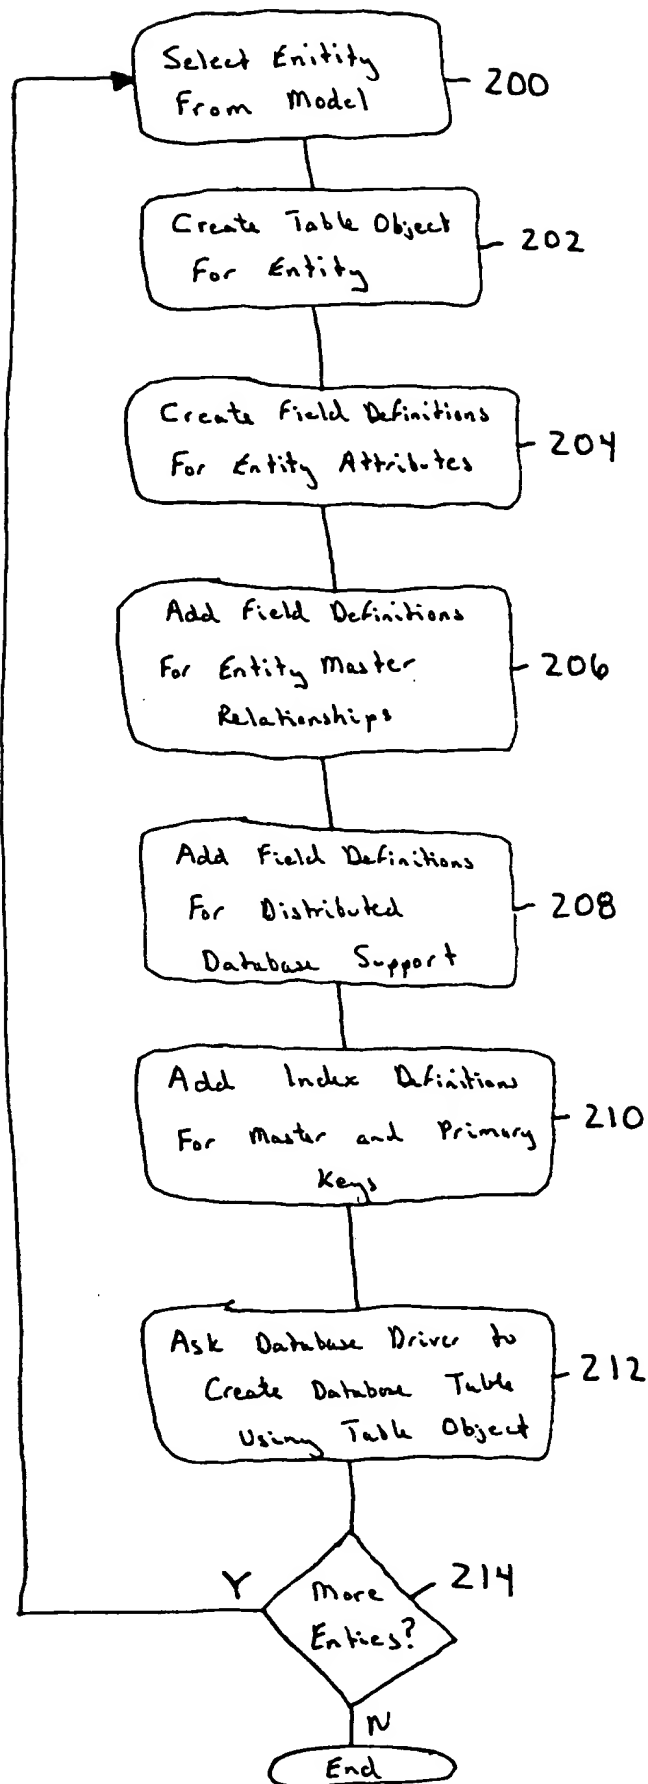 Select Enitity
From Model
200
Create Table Object
For Entity
202
Create Field Definitions
For Entity Attributes
204
Add Field Definitions
For Entity Master
Relationships
206
Add Field Definitions
For Distributed
Database Support
208
Add Index Definitions
For Master and Primary
Keys
210
Ask Database Driver to
Create Database Table
Using Table Object
212
Y
More
Enties?
214
N
End